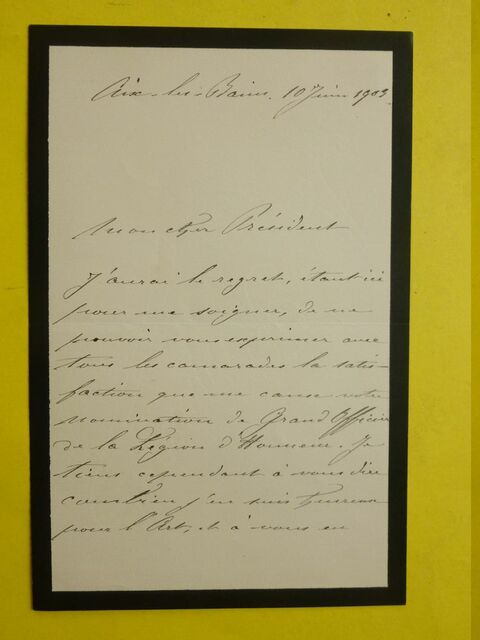 Aix-les-Bains. 10 Juin 1903.
Mon cher Président
J'aurai le regret, étant ici
pour me soigner, de ne
pouvoir vous exprimer avec
tous les camarades la satis-
faction que me cause votre
nomination de Grand Officier
de la Légion d'Honneur. Je
tiens cependant à vous dire
combien j'en suis heureux
pour l'Art, et à vous en